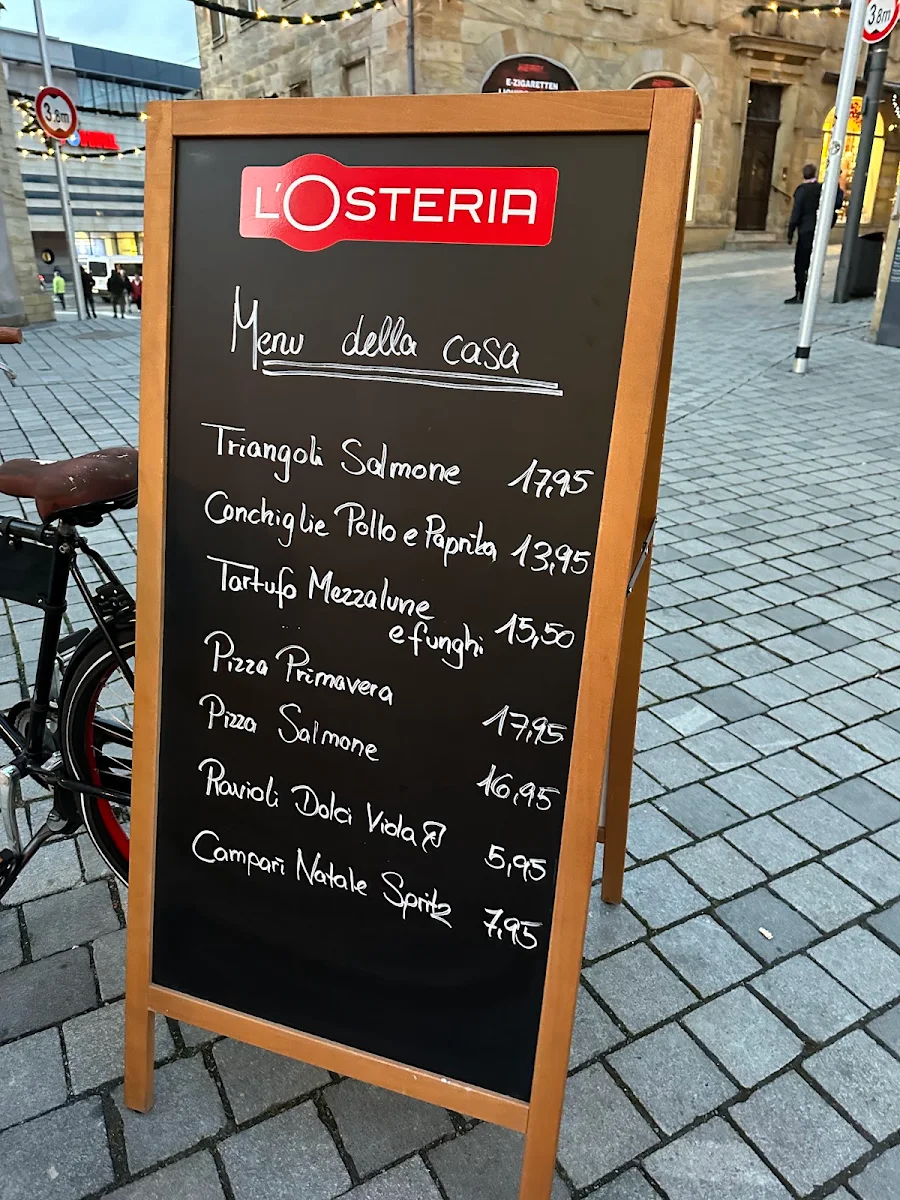 3.8m
3.8m
E-ZIGARETTEN
L'OSTERIA
Menu della casa
Triangoli Salmone 17,95
Conchiglie Pollo e Paprika 13,95
Tartufo Mezzalune
e funghi 15,50
Pizza Primavera 17,95
Pizza Salmone 16,95
Ravioli Dolci Viola 5,95
Campari Natale Spritz 7,95